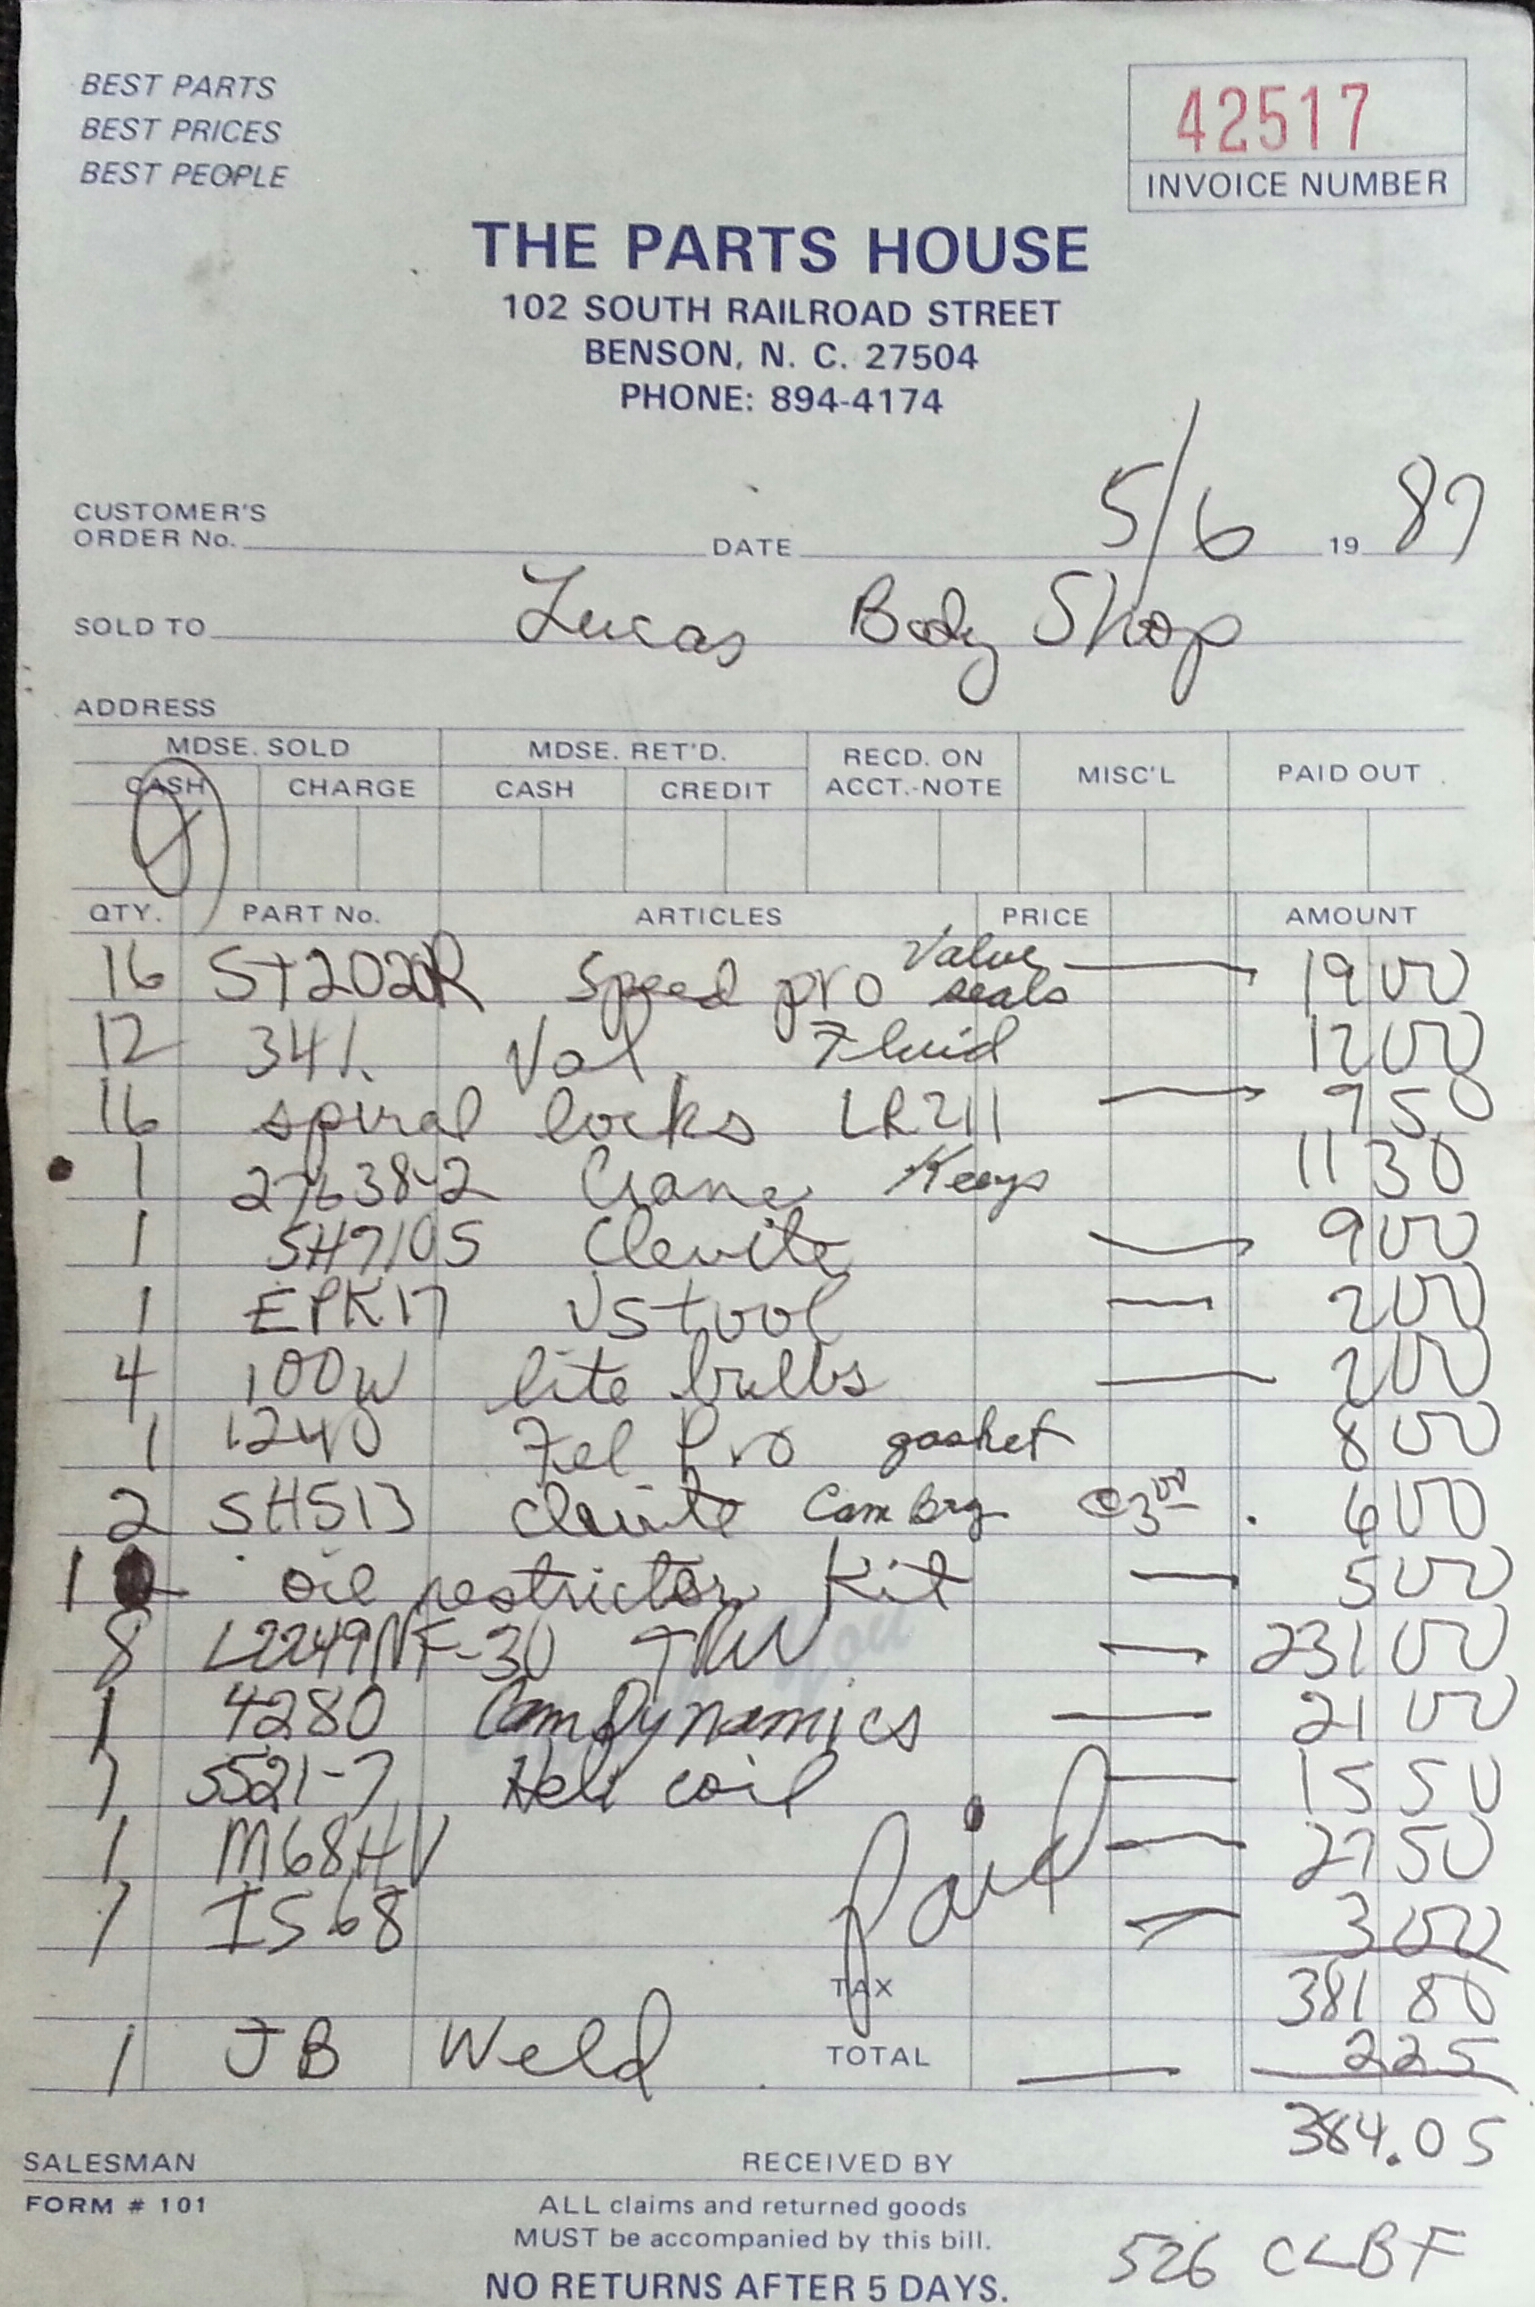 BEST PARTS
BEST PRICES
BEST PEOPLE
42517
INVOICE NUMBER
THE PARTS HOUSE
102 SOUTH RAILROAD STREET
BENSON, N. C. 27504
PHONE: 894-4174
CUSTOMER'S
ORDER No. DATE 5/6 19 87
SOLD TO Lucas Body Shop
ADDRESS
MDSE. SOLD MDSE. RET'D. RECD. ON ACCT.-NOTE MISC'L PAID OUT
CASH CHARGE CASH CREDIT
QTY. PART No. ARTICLES PRICE AMOUNT
16 ST202R Speed pro Valve seals 19 00
12 341 Val Fluid 12 00
16 spiral locks LR211 9 50
1 Crane Keeys 11 30
1 SH710S Clevite 9 00
1 EPK17 2 00
4 100W lite bulbs 2 00
1 1240 Fel Pro gasket 8 00
2 SH513 Clevite Cam Brg @ 3 00 6 00
1 oil restrictor Kit 5 00
8 L2249NF-30 TRW 231 00
1 4280 Cam Dynamics 21 00
1 5521-7 Heli coil 15 50
1 M68HV 27 50
1 IS68 3 00
Paid
TAX 381 80
1 JB Weld TOTAL 2 25
384.05
SALESMAN RECEIVED BY
FORM # 101 ALL claims and returned goods
MUST be accompanied by this bill.
526 CLBF
NO RETURNS AFTER 5 DAYS.